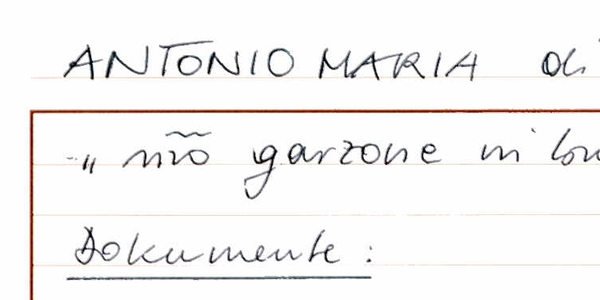 ANTONIO MARIA di
" nr̃o garzone in
Dokumente: